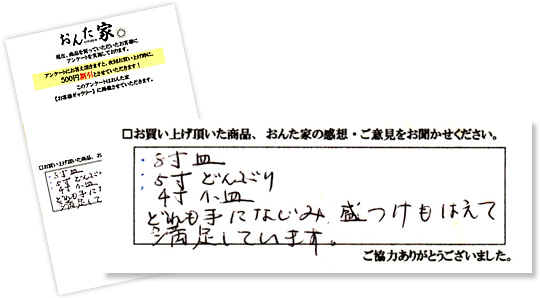 おんた家
現在、商品を買っていただいたお客様に
アンケートを実施しております。
アンケートにお答え頂きますと、次回お買い上げ時に、
500円割引とさせていただきます！
このアンケートはおんた家
【お客様ギャラリー】に掲載させていただきます。
□お買い上げ頂いた商品、お
・8寸皿
・5寸どんぶり
4寸小皿
どれも手にな
満足して
□お買い上げ頂いた商品、おんた家の感想・ご意見をお聞かせください。
・8寸皿
・5寸どんぶり
4寸小皿
どれも手になじみ、盛つけもはえて
満足しています。
ご協力ありがとうございました。